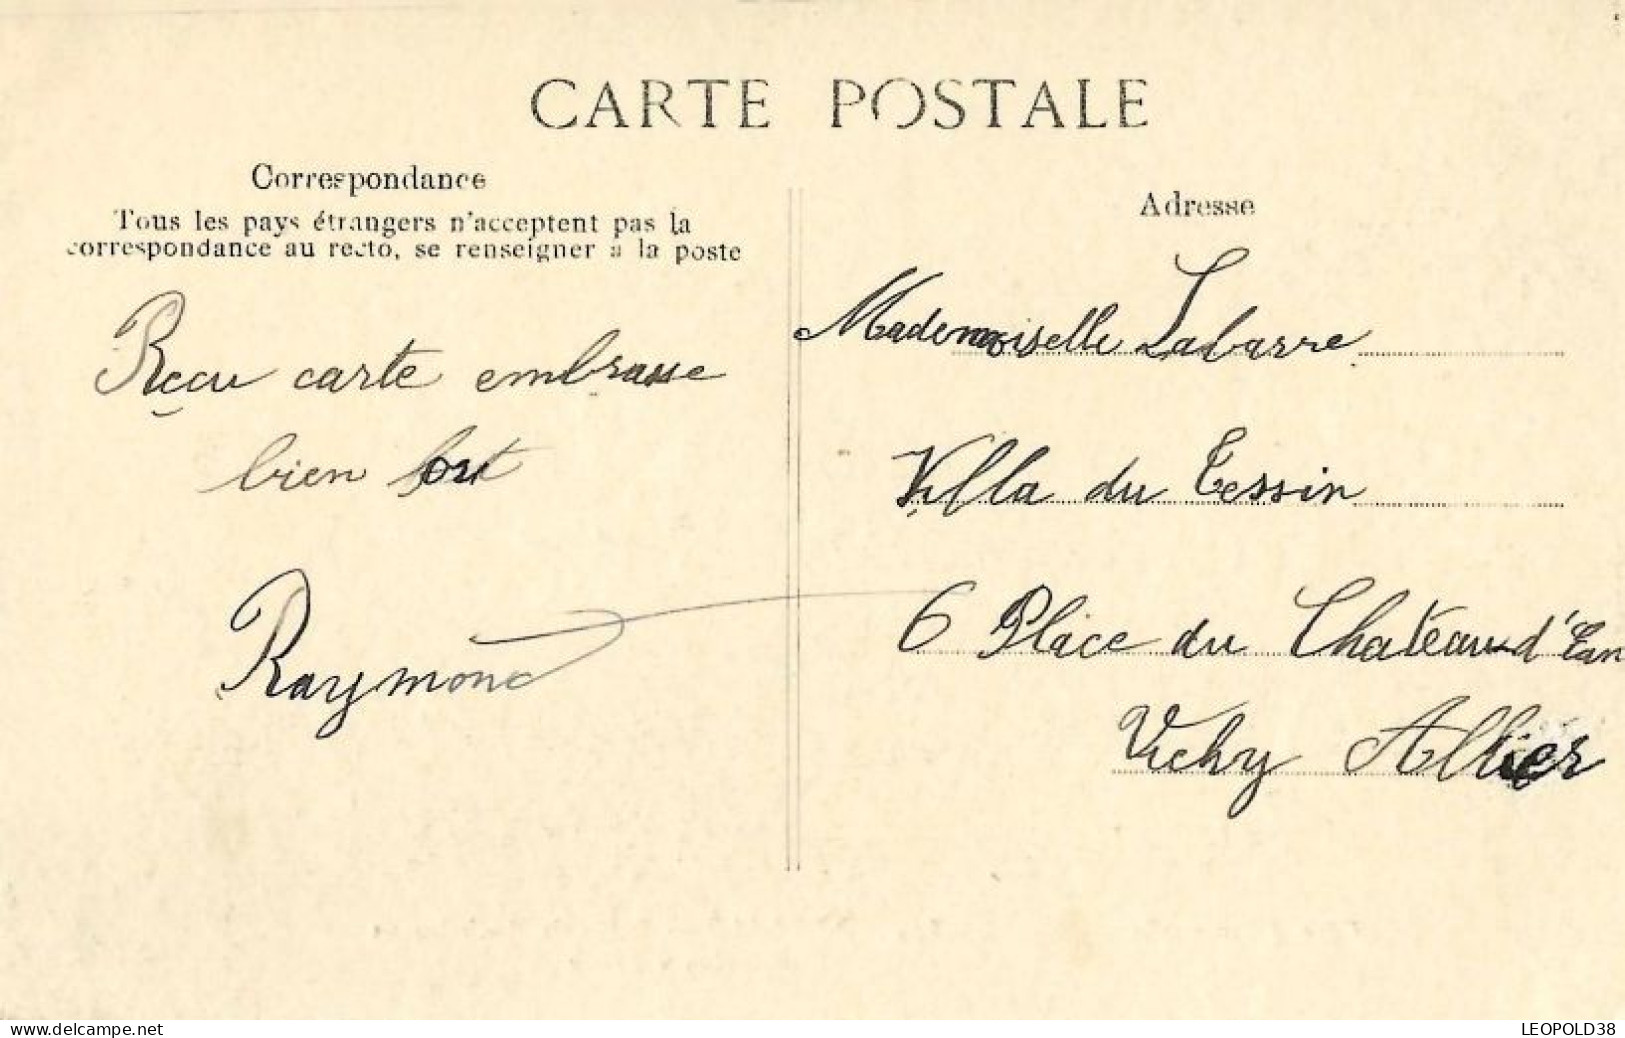 CARTE POSTALE
Correspondance
Tous les pays étrangers n'acceptent pas la
correspondance au recto, se renseigner à la poste
Reçu carte embrasse
bien fort
Raymond
Adresse
Mademoiselle Labarre
Villa du Tessin
6 Place du Chateau d'Eau
Vichy Allier
www.delcampe.net
LEOPOLD38